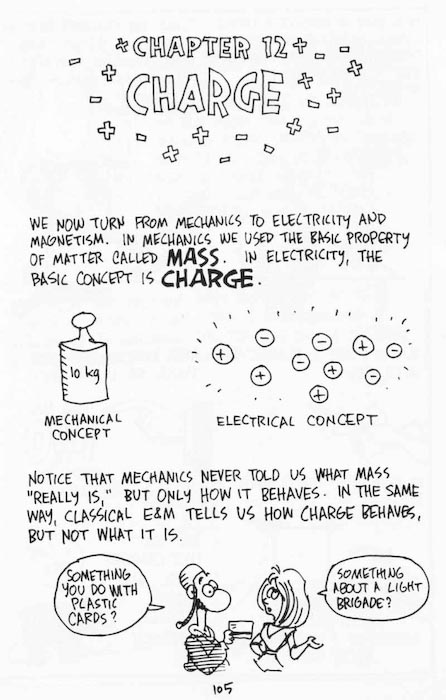 CHAPTER 12
CHARGE
WE NOW TURN FROM MECHANICS TO ELECTRICITY AND
MAGNETISM. IN MECHANICS WE USED THE BASIC PROPERTY
OF MATTER CALLED MASS. IN ELECTRICITY, THE
BASIC CONCEPT IS CHARGE.
10 kg
MECHANICAL
CONCEPT
ELECTRICAL CONCEPT
NOTICE THAT MECHANICS NEVER TOLD US WHAT MASS
"REALLY IS," BUT ONLY HOW IT BEHAVES. IN THE SAME
WAY, CLASSICAL E&M TELLS US HOW CHARGE BEHAVES,
BUT NOT WHAT IT IS.
SOMETHING
YOU DO WITH
PLASTIC
CARDS?
SOMETHING
ABOUT A LIGHT
BRIGADE?
105